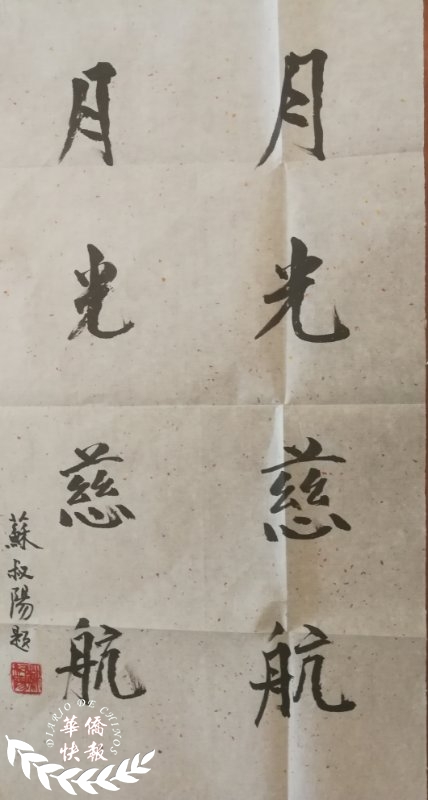 月光慈航
月光慈航
蘇叔陽題
DIARIO DE CHINOS
華僑
快報